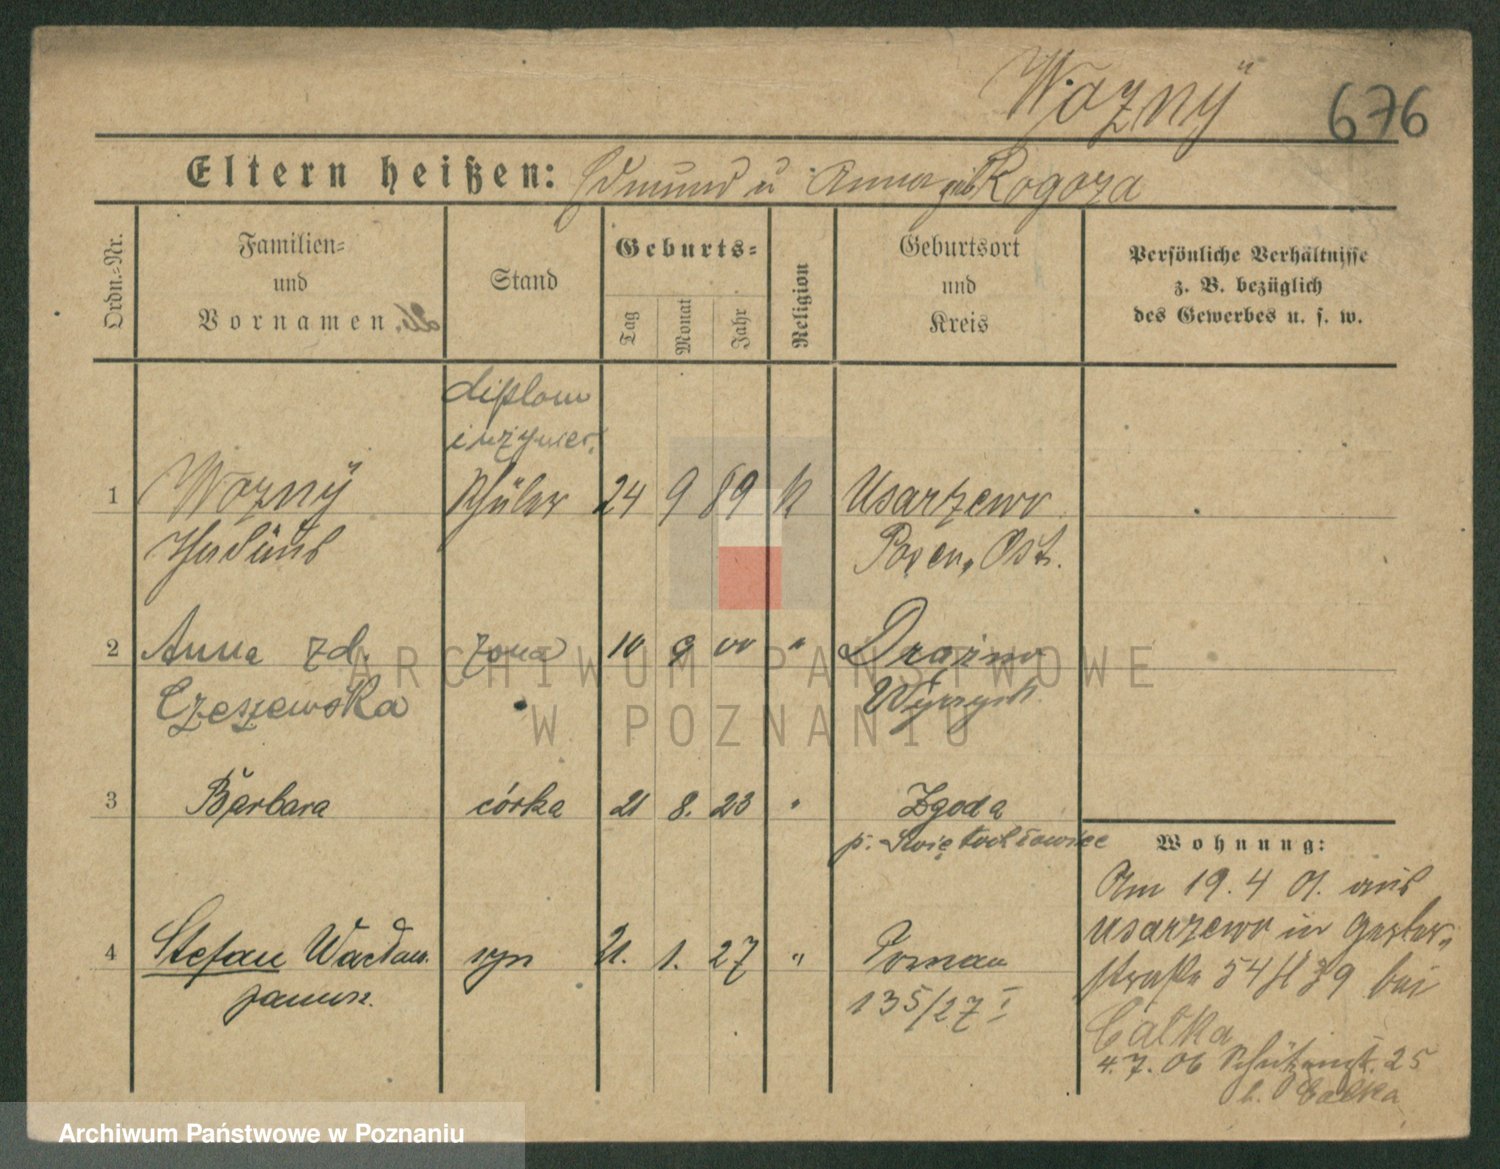 Wozny
676
Eltern heißen: Edmund u Anna geb Rogoza
Ordn.-Nr.
Familien-
und
Vornamen.
Stand
Geburts-
Tag
Monat
Jahr
Religion
Geburtsort
und
Kreis
Persönliche Verhältnisse
z. B. bezüglich
des Gewerbes u. s. w.
diplom
inżynier.
1 Wozny Schüler 24 9 89 K Usarzewo
Posen, Ost.
2 Anna zd. żona 10 9 00 "
Czeszewska Wyrzysk
3 Barbara córka 21 8. 23 " Zgoda
p. Świętochłowice
4 Stefan Wacław syn 21. 1. 27 " Poznań
Janusz. 135/27 I
Wohnung:
Am 19. 4 01. aus
Usarzewo in Gerber-
straße 54 bei
Całka
4. 7. 06 Schützenstr. 25
b. Całka
ARCHIWUM PAŃSTWOWE
W POZNANIU
Archiwum Państwowe w Poznaniu